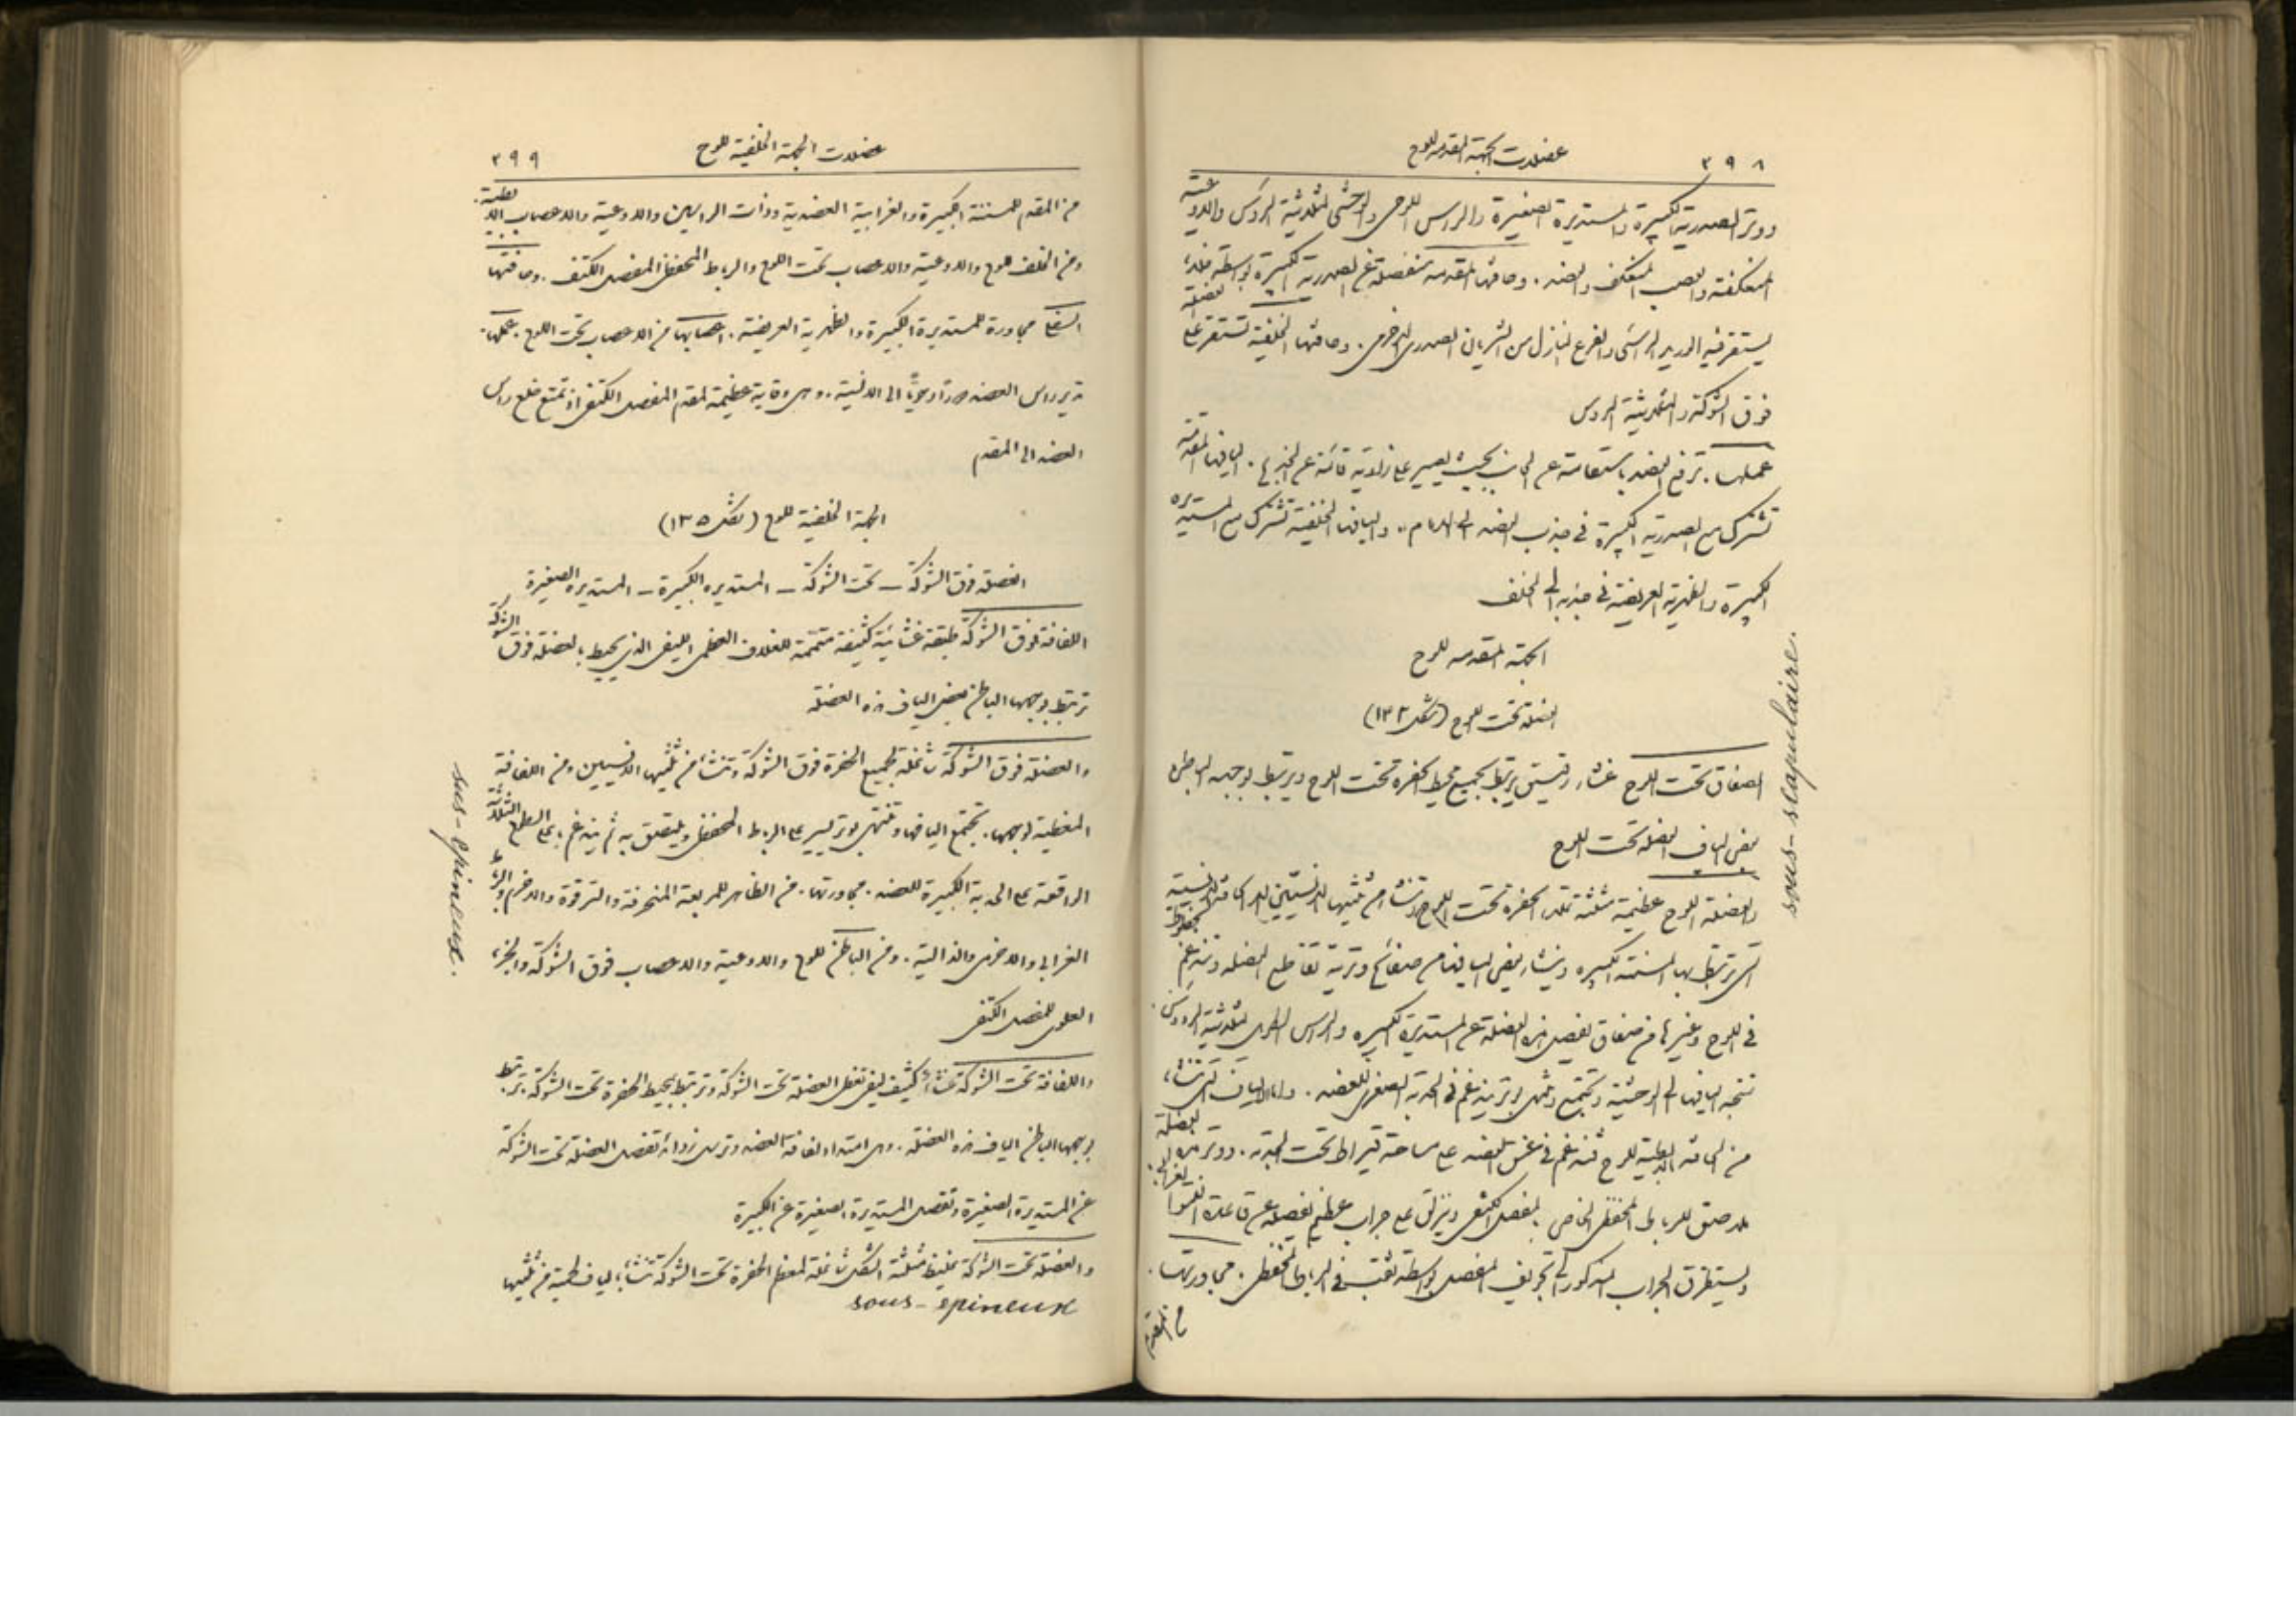 ٣٩٨
عضلات الجهة المقدمة للوح
ووتر الصدرية الكبيرة والمستديرة الصغيرة والراس اللوحى والوحشى لثلاثية الروس والاوعية
المنعكفة والعصب المنعكف والعضد . وحافتها المقدمة منفصلة عن الصدرية الكبيرة بواسطة خلاء
يستقر فيه الوريد الراسى والفرع النازل من الشريان الصدرى الاخرمى . وحافتها الخلفية تستقر على العضلة
فوق الشوكة والثلاثية الروس
عملها . ترفع العضد باستقامة عن الجانب بحيث يصير على زاوية قائمة عن الجذع . اليافها المقدمة
تشترك مع الصدرية الكبيرة فى جذب العضد الى الامام . واليافها الخلفية تشترك مع المستديرة
الكبيرة والظهرية العريضة فى جذبه الى الخلف
الجهة المقدمة للوح
العضلة تحت اللوح (شكل ١٣٢)
الصفاق تحت اللوح غشاء رقيق يرتبط بجميع محيط الحفرة تحت اللوح ويرتبط بوجهه الباطن
بعض الياف العضلة تحت اللوح
والعضلة تحت اللوح عظيمة مثلثة تملا الحفرة تحت اللوح وتنشا من ثلثيها الانسيين
التى ترتبط بها المسننة الكبيرة وينشا بعض اليافها من صفائح وترية تقاطع العضلة وتندغم بخطوط
فى اللوح وغيرها من صفاق يفصل هذه العضلة عن المستديرة الكبيرة والراس الطويل لثلاثية الروس .
تتجه اليافها الى الوحشية وتجتمع وتنتهى بوتر يندغم فى الحدبة الصغرى للعضد . واما الالياف التى تنشا
من الحافة الابطية للوح فتندغم فى عنق العضد على مساحة قيراط تحت الحدبة . ووتر هذه العضلة
ملاصق للرباط المحفظى الخاص بالمفصل الكتفى وينزلق على جراب عظيم يفصله عن قاعدة النتوء الغرابى
ويستطرق الجراب المذكور الى تجويف المفصل بواسطة ثقب فى الرباط المحفظى . مجاورتها .
من المقدم
sous-scapulaire.
عضلات الجهة الخلفية للوح
٣٩٩
من المقدم للمسننة الكبيرة والغرابية العضدية وذات الراسين والاوعية والاعصاب الابطية .
ومن الخلف للوح والاوعية والاعصاب تحت اللوح والرباط المحفظى للمفصل الكتفى . وحافتها
السفلى مجاورة للمستديرة الكبيرة والظهرية العريضة . اعصابها من الاعصاب تحت اللوح . عملها .
تدير راس العضد الى الانسية . وهى وقاية عظيمة لمقدم المفصل الكتفى اذ تمنع خلع راس
العضد الى المقدم
الجهة الخلفية للوح (شكل ١٣٥)
العضلة فوق الشوكة - تحت الشوكة - المستديرة الكبيرة - المستديرة الصغيرة
اللفافة فوق الشوكة طبقة غشائية كثيفة متممة للغلاف العظمى الليفى الذى يحيط بالعضلة فوق الشوكة
ترتبط بوجهها الباطن بعض الياف هذه العضلة
والعضلة فوق الشوكة شاغلة لجميع الحفرة فوق الشوكة وتنشا من ثلثيها الانسيين ومن اللفافة
المغطية لوجهها . تجتمع اليافها وتنتهى بوتر يسير على الرباط المحفظى ويلتصق به ثم يندغم باعلى السطوح الثلاثة
الواقعة على الحدبة الكبيرة للعضد . مجاورتها . من الظاهر للمربعة المنحرفة والترقوة والاخرم والرباط
الغرابى والاخرمى والدالية . ومن الباطن للوح والاوعية والاعصاب فوق الشوكة والجزء
العلوى للمفصل الكتفى
واللفافة تحت الشوكة غشاء كثيف ليفى تغطى العضلة تحت الشوكة وترتبط بمحيط الحفرة تحت الشوكة ترتبط
بوجهها الباطن الياف هذه العضلة . وهى امتداد لفافة العضد وترسل زوائد تفصل العضلة تحت الشوكة
عن المستديرة الصغيرة وتفصل المستديرة الصغيرة عن الكبيرة
والعضلة تحت الشوكة غليظة مثلثة الشكل شاغلة لمعظم الحفرة تحت الشوكة تنشا بالياف لحمية من ثلثيها
sous-épineux
sus-épineux.